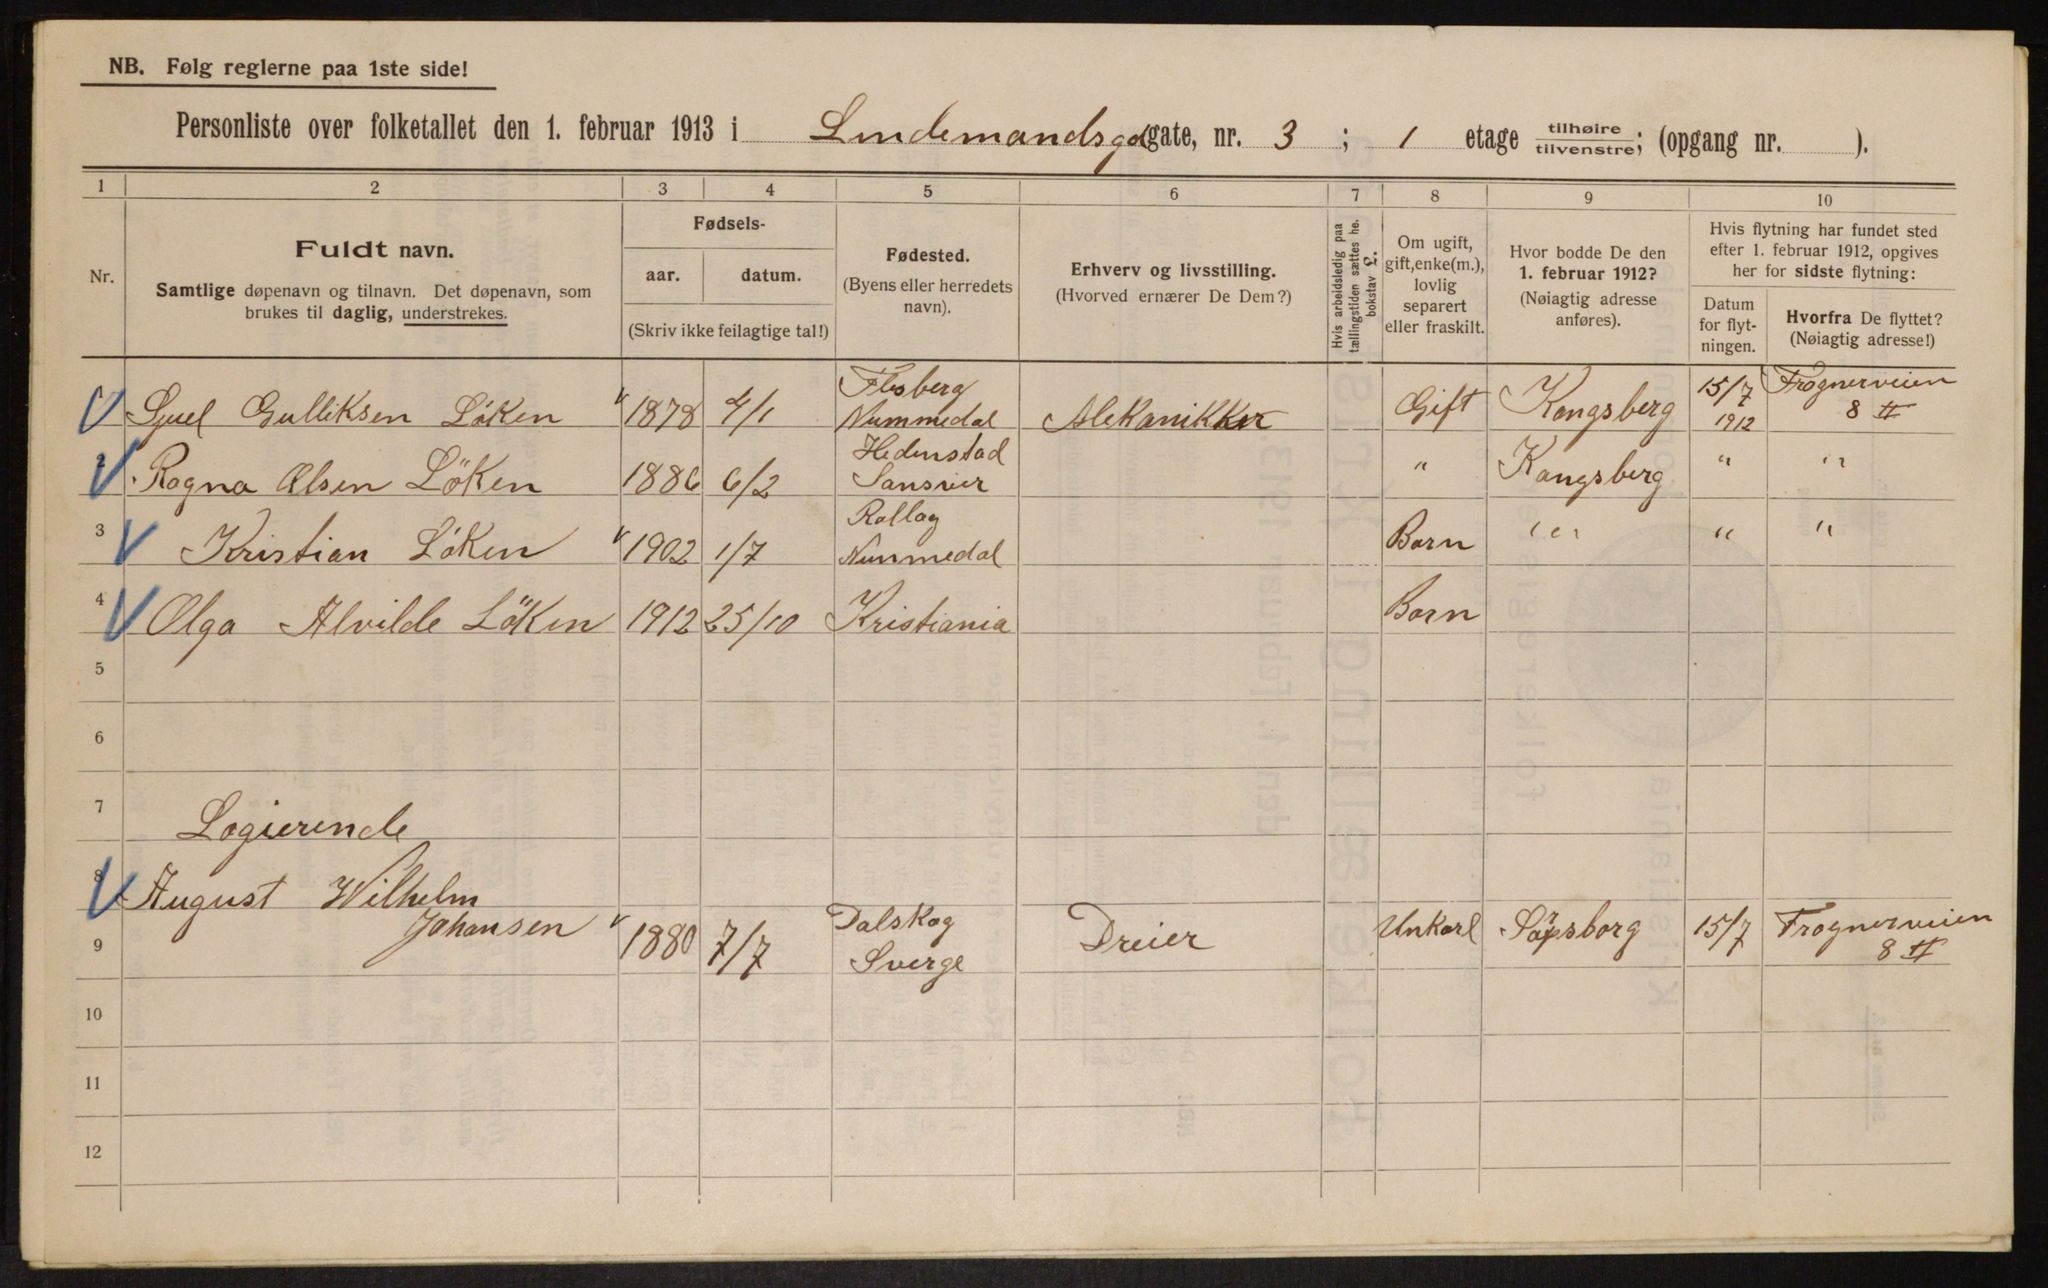 NB. Følg reglerne paa 1ste side!
Personliste over folketallet den 1. februar 1913 i Lindemandsgd gate, nr. 3 ; 1 etage tilhøire tilvenstre; (opgang nr. ).
1 2 3 4 5 6 7 8 9 10
Nr.
Fuldt navn.
Samtlige døpenavn og tilnavn. Det døpenavn, som
brukes til daglig, understrekes.
Fødsels-
aar. datum.
(Skriv ikke feilagtige tal!)
Fødested.
(Byens eller herredets
navn).
Erhverv og livsstilling.
(Hvorved ernærer De Dem?)
Hvis arbeidsledig paa
tællingstiden sættes her
bokstav L.
Om ugift,
gift, enke(m.),
lovlig
separert
eller fraskilt.
Hvor bodde De den
1. februar 1912?
(Nøiagtig adresse
anføres).
Hvis flytning har fundet sted
efter 1. februar 1912, opgives
her for sidste flytning:
Datum
for flyt-
ningen.
Hvorfra De flyttet?
(Nøiagtig adresse!)
Sjuel Gulliksen Löken 1878 4/1 Flesberg Nummedal Mekanikker Gift Kongsberg 15/7 1912 Frognerveien 8 II
Ragna Olsen Löken 1886 6/2 Hedenstad Sansvier " Kongsberg " "
3 Kristian Löken 1902 1/7 Rollag Nummedal Barn " " " "
4 Olga Alvilde Löken 1912 25/10 Kristiania Barn
5
6
7 Logierende
8 August Wilhelm
9 Johansen 1880 7/7 Dalskog Sverge Dreier Unkarl Sarpsborg 15/7 Frognerveien 8 II
10
11
12